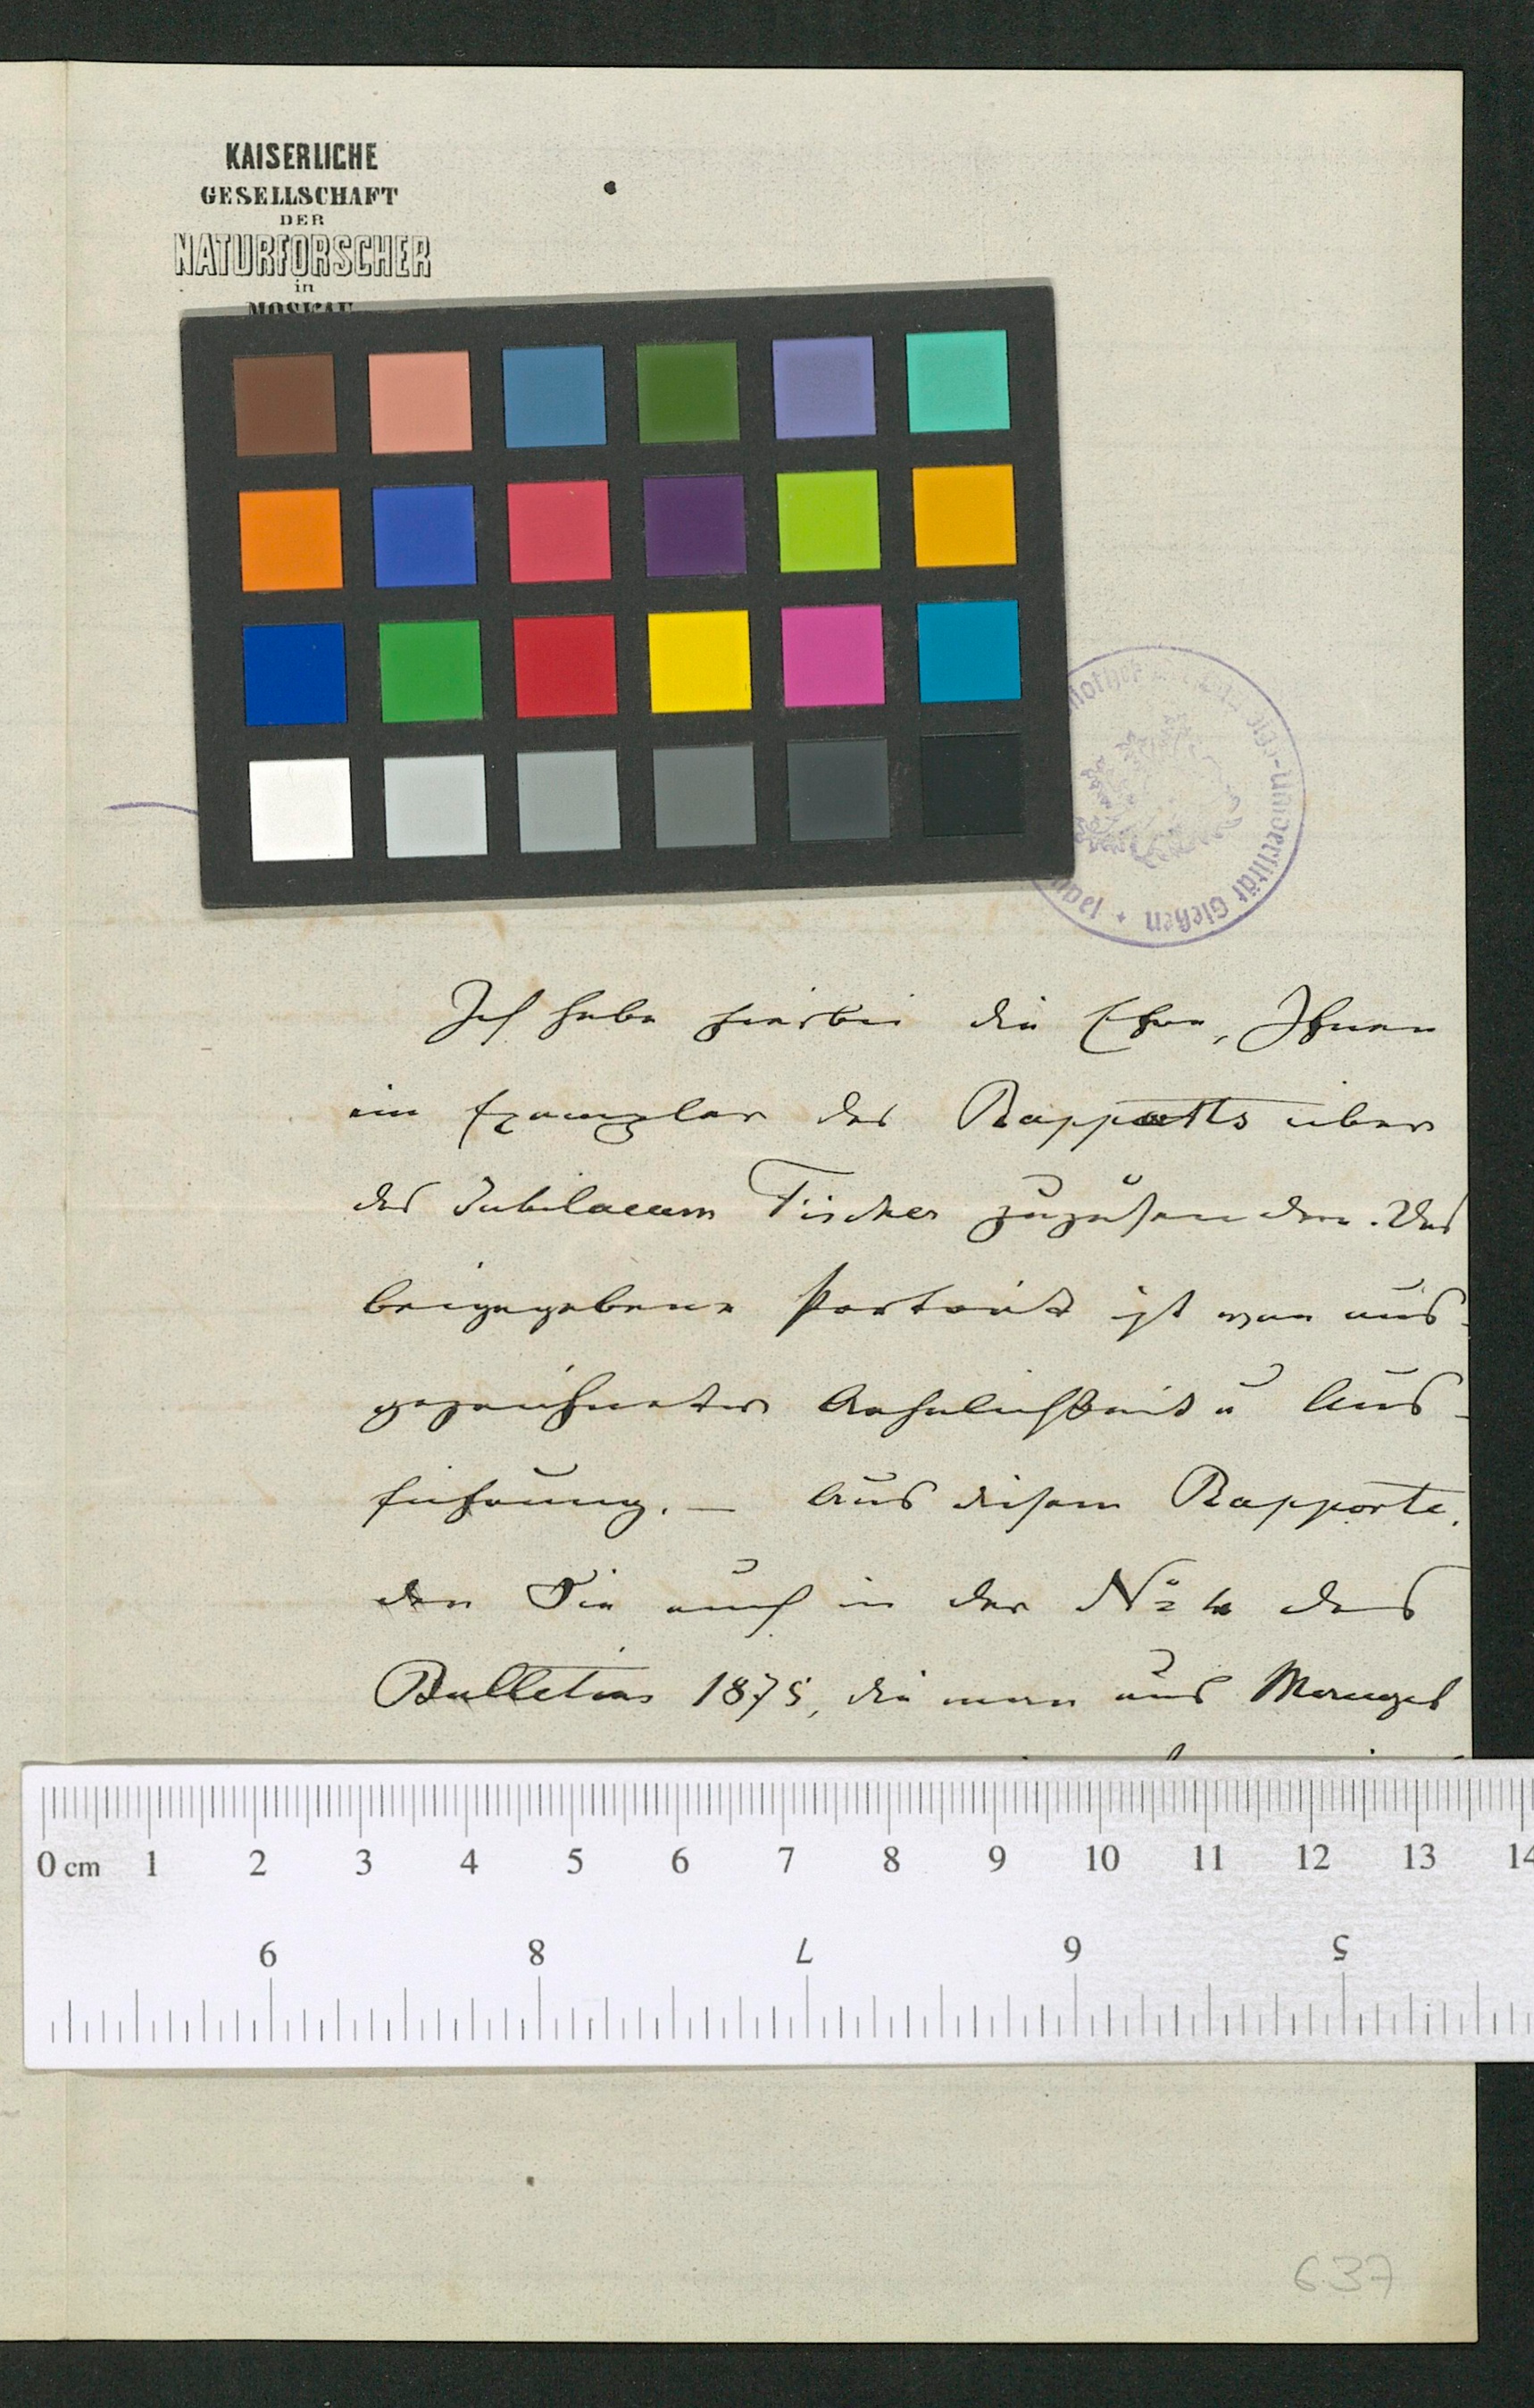 KAISERLICHE
GESELLSCHAFT
DER
NATURFORSCHER
in
MOSKAU
Universität Gießen
Ich habe hierbei die Ehre, Ihnen
ein Exemplar des Rapports über
das Jubilaeum Fischer zuzusenden. Das
beigegebene Portrait ist von aus-
gezeichneter Aehnlichkeit u Aus-
führung. — Aus diesem Rapporte,
den Sie auch in der No 4 des
Bulletins 1875, die man aus Mangel
0 cm 1 2 3 4 5 6 7 8 9 10 11 12 13 14
9 8 7 6 5
637